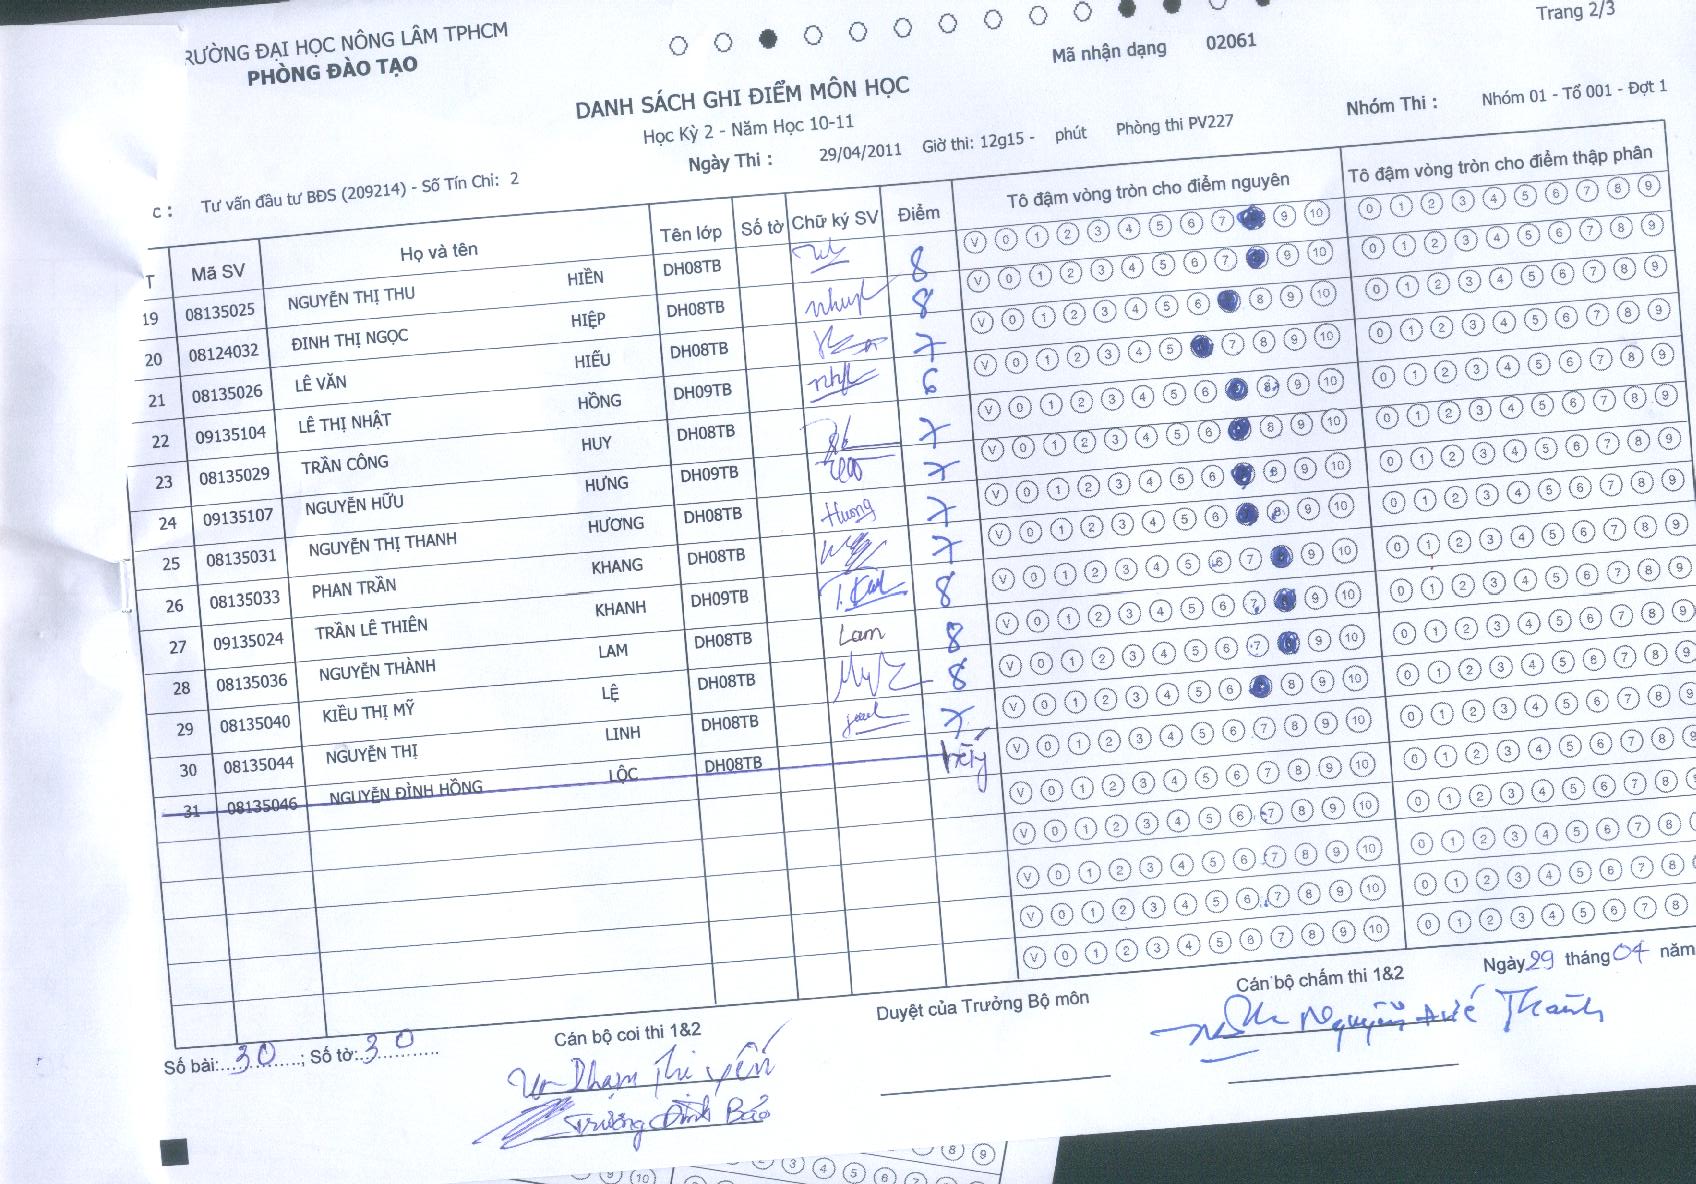 RƯỜNG ĐẠI HỌC NÔNG LÂM TPHCM
PHÒNG ĐÀO TẠO
Trang 2/3
Mã nhận dạng 02061
DANH SÁCH GHI ĐIỂM MÔN HỌC
Học Kỳ 2 - Năm Học 10-11
Nhóm Thi : Nhóm 01 - Tổ 001 - Đợt 1
Ngày Thi : 29/04/2011 Giờ thi: 12g15 - phút Phòng thi PV227
c : Tư vấn đầu tư BĐS (209214) - Số Tín Chi: 2
T Mã SV Họ và tên Tên lớp Số tờ Chữ ký SV Điểm Tô đậm vòng tròn cho điểm nguyên Tô đậm vòng tròn cho điểm thập phân
19 08135025 NGUYỄN THỊ THU HIỀN DH08TB 8 V 0 1 2 3 4 5 6 7 9 10 0 1 2 3 4 5 6 7 8 9
20 08124032 ĐINH THỊ NGỌC HIỆP DH08TB 8 V 0 1 2 3 4 5 6 7 9 10 0 1 2 3 4 5 6 7 8 9
21 08135026 LÊ VĂN HIẾU DH08TB 7 V 0 1 2 3 4 5 6 8 9 10 0 1 2 3 4 5 6 7 8 9
22 09135104 LÊ THỊ NHẬT HỒNG DH09TB 6 V 0 1 2 3 4 5 7 8 9 10 0 1 2 3 4 5 6 7 8 9
23 08135029 TRẦN CÔNG HUY DH08TB 7 V 0 1 2 3 4 5 6 8 9 10 0 1 2 3 4 5 6 7 8 9
24 09135107 NGUYỄN HỮU HƯNG DH09TB 7 V 0 1 2 3 4 5 6 8 9 10 0 1 2 3 4 5 6 7 8 9
25 08135031 NGUYỄN THỊ THANH HƯƠNG DH08TB Hương 7 V 0 1 2 3 4 5 6 8 9 10 0 1 2 3 4 5 6 7 8 9
26 08135033 PHAN TRẦN KHANG DH08TB 7 V 0 1 2 3 4 5 6 8 9 10 0 1 2 3 4 5 6 7 8 9
27 09135024 TRẦN LÊ THIÊN KHANH DH09TB 8 V 0 1 2 3 4 5 6 7 9 10 0 1 2 3 4 5 6 7 8 9
28 08135036 NGUYỄN THÀNH LAM DH08TB Lam 8 V 0 1 2 3 4 5 6 7 9 10 0 1 2 3 4 5 6 7 8 9
29 08135040 KIỀU THỊ MỸ LỆ DH08TB 8 V 0 1 2 3 4 5 6 7 9 10 0 1 2 3 4 5 6 7 8 9
30 08135044 NGUYỄN THỊ LINH DH08TB 7 V 0 1 2 3 4 5 6 8 9 10 0 1 2 3 4 5 6 7 8 9
31 08135046 NGUYỄN ĐÌNH HỒNG LỘC DH08TB V 0 1 2 3 4 5 6 7 8 9 10 0 1 2 3 4 5 6 7 8 9
V 0 1 2 3 4 5 6 7 8 9 10 0 1 2 3 4 5 6 7 8 9
V 0 1 2 3 4 5 6 7 8 9 10 0 1 2 3 4 5 6 7 8 9
V 0 1 2 3 4 5 6 7 8 9 10 0 1 2 3 4 5 6 7 8
V 0 1 2 3 4 5 6 7 8 9 10 0 1 2 3 4 5 6 7 8
V 0 1 2 3 4 5 6 7 8 9 10 0 1 2 3 4 5 6 7 8
Ngày 29 tháng 04 năm
Số bài: 30 ; Số tờ: 30 Cán bộ coi thi 1&2 Duyệt của Trưởng Bộ môn Cán bộ chấm thi 1&2
Phạm Thi Yến
Trương Đình Bảo
Nguyễn Đức Thành